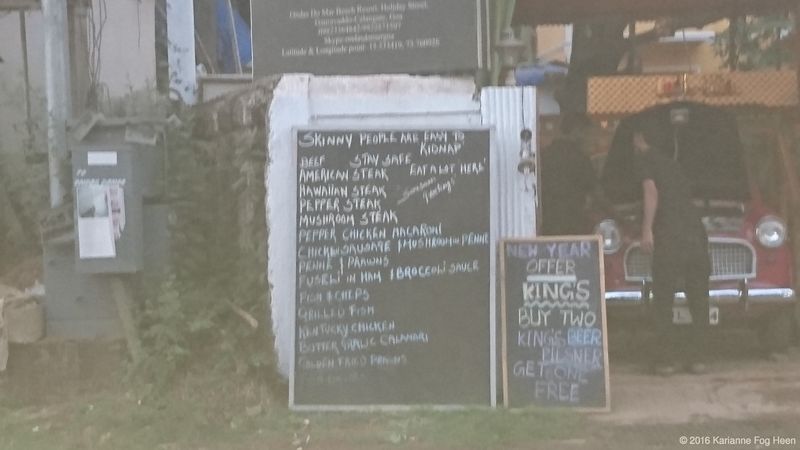 Under De Mar Beach Resort, Holiday Street,
Latitude & Longitude point
SKINNY PEOPLE ARE EASY TO
KIDNAP
BEEF STAY SAFE
AMERICAN STEAK EAT A LOT HERE!
HAWAIIAN STEAK
PEPPER STEAK
MUSHROOM STEAK
PEPPER CHICKEN MACARONI
CHICKEN SAUSAGE & MUSHROOM PENNE
PENNE & PRAWNS
FUSELI IN HAM & BROCCOLI SAUCE
FISH & CHIPS
GRILLED FISH
KENTUCKY CHICKEN
BUTTER GARLIC CALAMARI
GOLDEN FRIED PRAWNS
NEW YEAR
OFFER
KING'S
BUY TWO
KING'S BEER
PILSNER
GET ONE
FREE
© 2016 Karianne Fog Heen